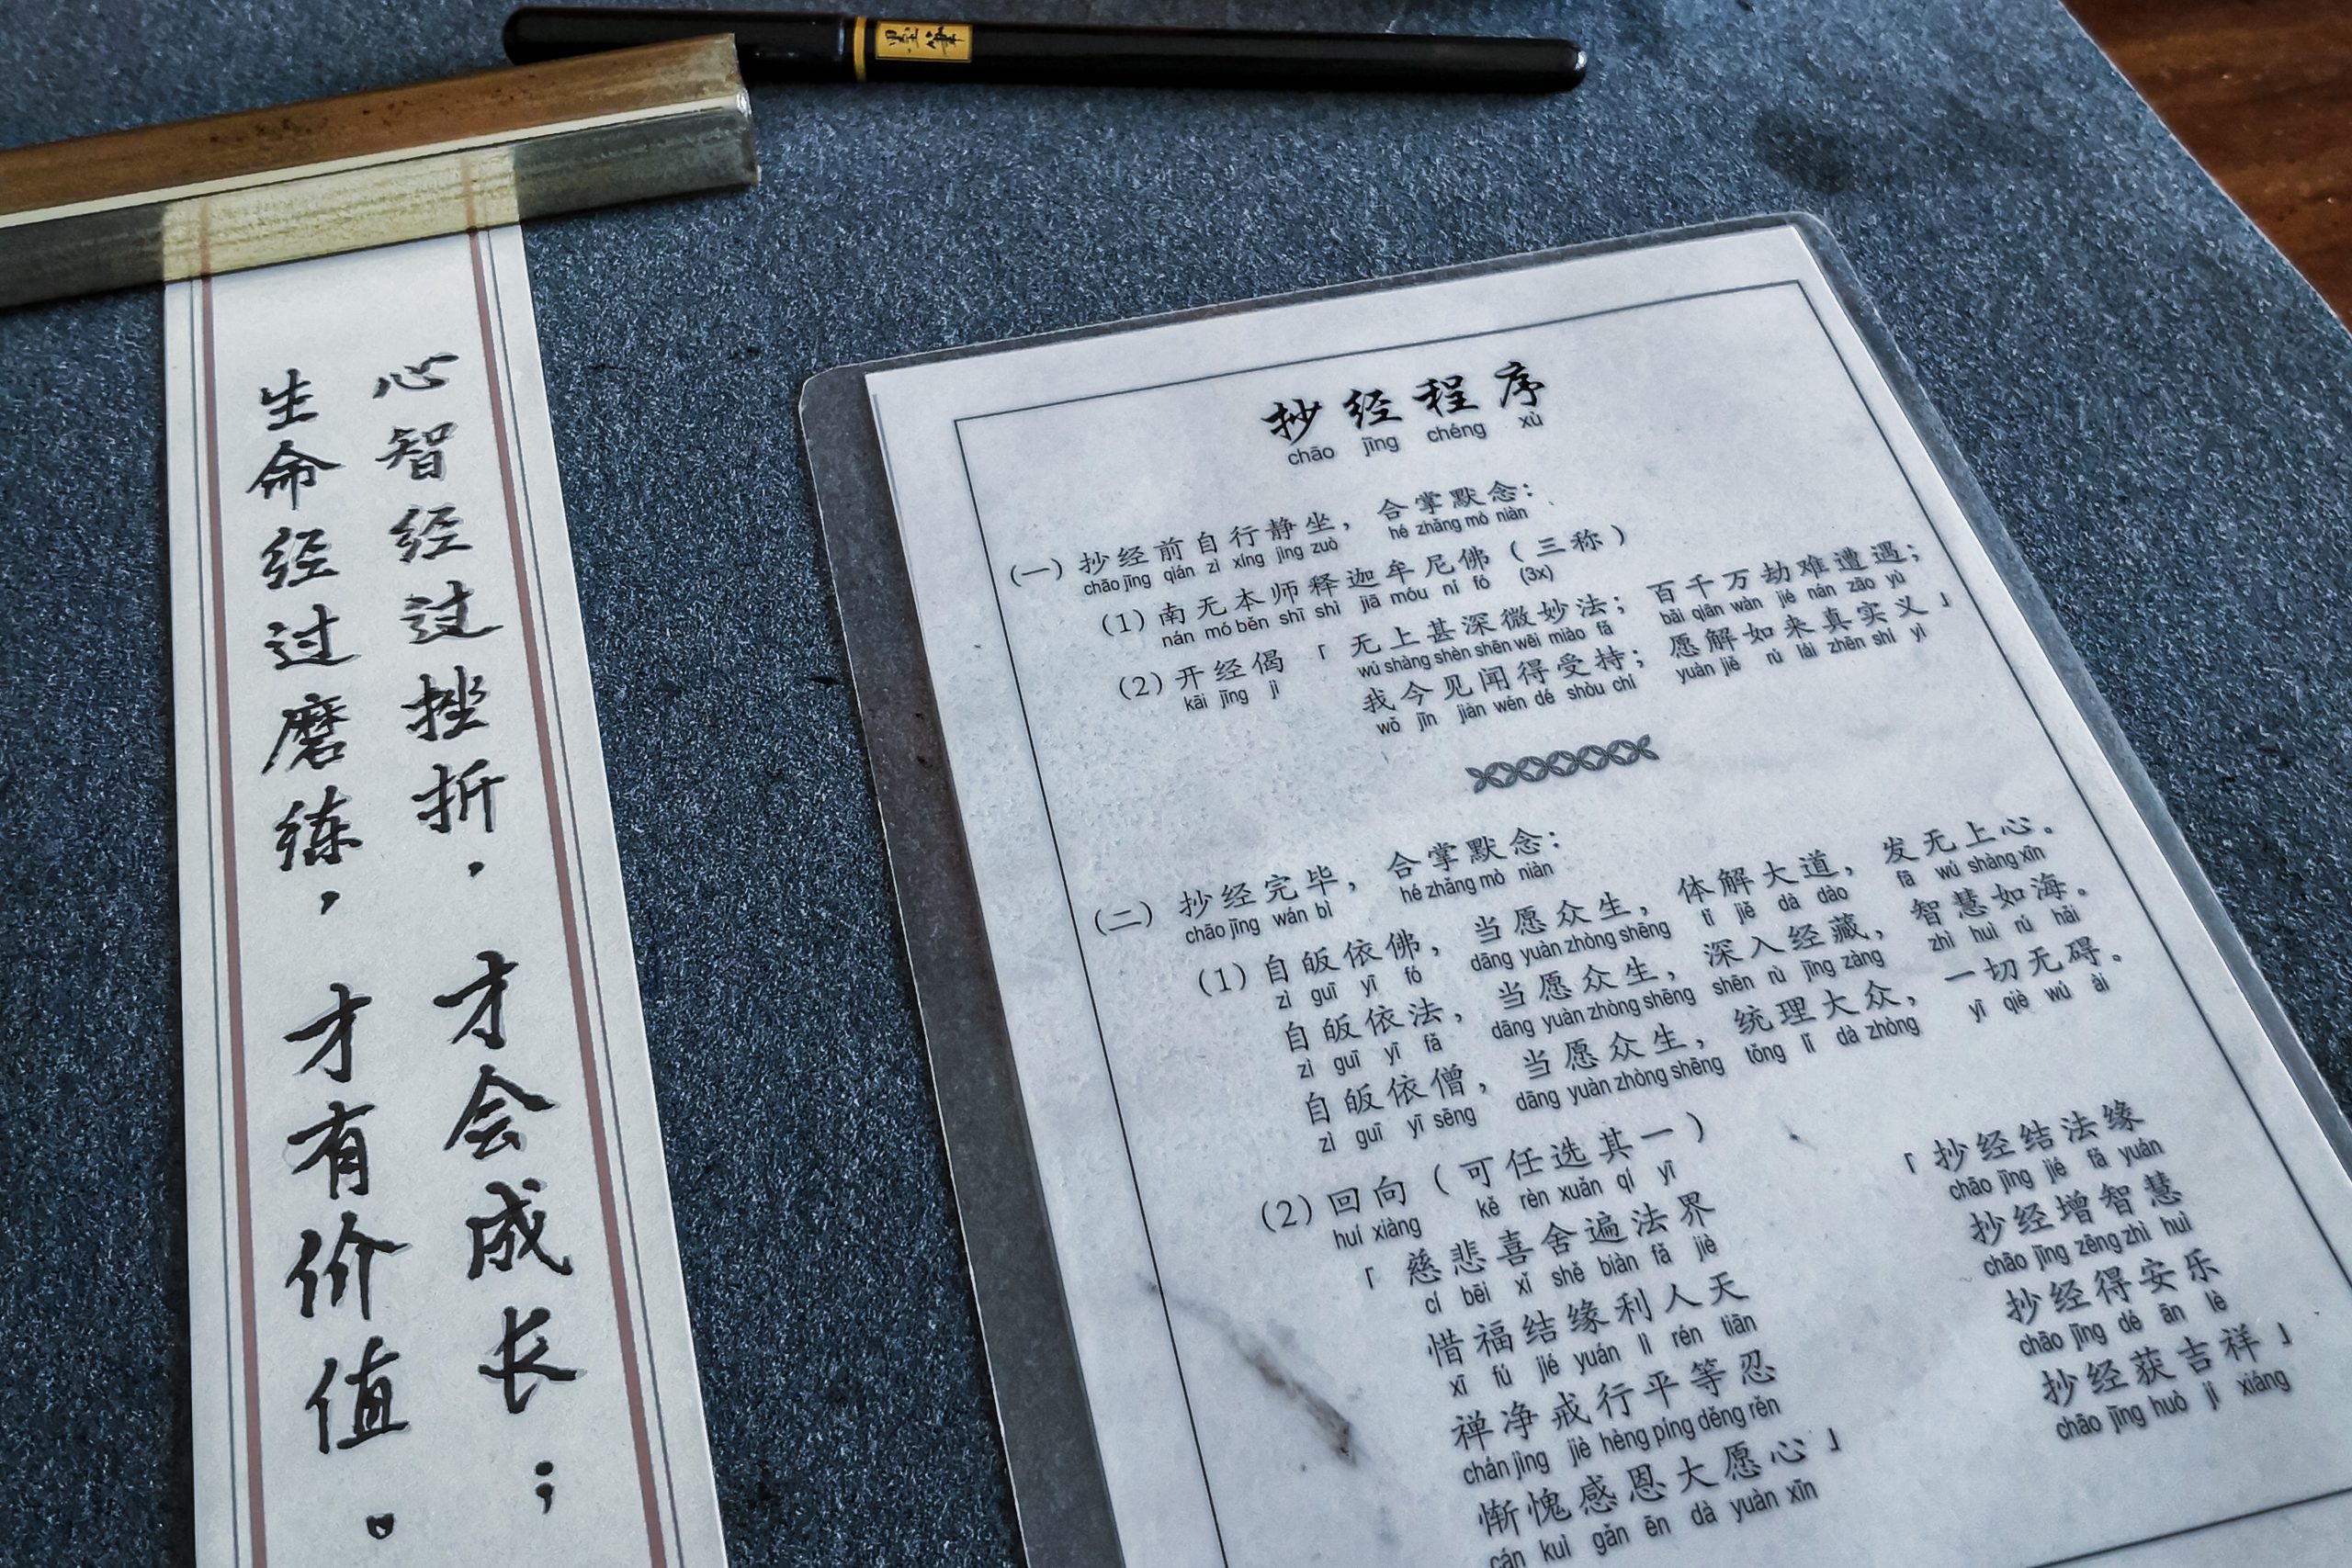 墨筆
心智经过挫折，才会成长；
生命经过磨练，才有价值。
抄经程序
chāo jīng chéng xù
(一) 抄经前自行静坐，合掌默念：
chāo jīng qián zì xíng jìng zuò hé zhǎng mò niàn
(1) 南无本师释迦牟尼佛（三称）
nán mó běn shī shì jiā móu ní fó (3x)
(2) 开经偈「无上甚深微妙法；百千万劫难遭遇；
kāi jīng jì wú shàng shèn shēn wēi miào fǎ bǎi qiān wàn jié nán zāo yù
我今见闻得受持；愿解如来真实义」
wǒ jīn jiàn wén dé shòu chí yuàn jiě rú lái zhēn shí yì
(二) 抄经完毕，合掌默念：
chāo jīng wán bì hé zhǎng mò niàn
(1) 自皈依佛，当愿众生，体解大道，发无上心。
zì guī yī fó dāng yuàn zhòng shēng tǐ jiě dà dào fā wú shàng xīn
自皈依法，当愿众生，深入经藏，智慧如海。
zì guī yī fǎ dāng yuàn zhòng shēng shēn rù jīng zàng zhì huì rú hǎi
自皈依僧，当愿众生，统理大众，一切无碍。
zì guī yī sēng dāng yuàn zhòng shēng tǒng lǐ dà zhòng yī qiè wú ài
(2) 回向（可任选其一）
huí xiàng kě rèn xuǎn qí yī
「慈悲喜舍遍法界
cí bēi xǐ shě biàn fǎ jiè
惜福结缘利人天
xī fú jié yuán lì rén tiān
禅净戒行平等忍
chán jìng jiè hèng píng děng rěn
惭愧感恩大愿心」
cán kuì gǎn ēn dà yuàn xīn
「抄经结法缘
chāo jīng jié fǎ yuán
抄经增智慧
chāo jīng zēng zhì huì
抄经得安乐
chāo jīng dé ān lè
抄经获吉祥」
chāo jīng huò jí xiáng